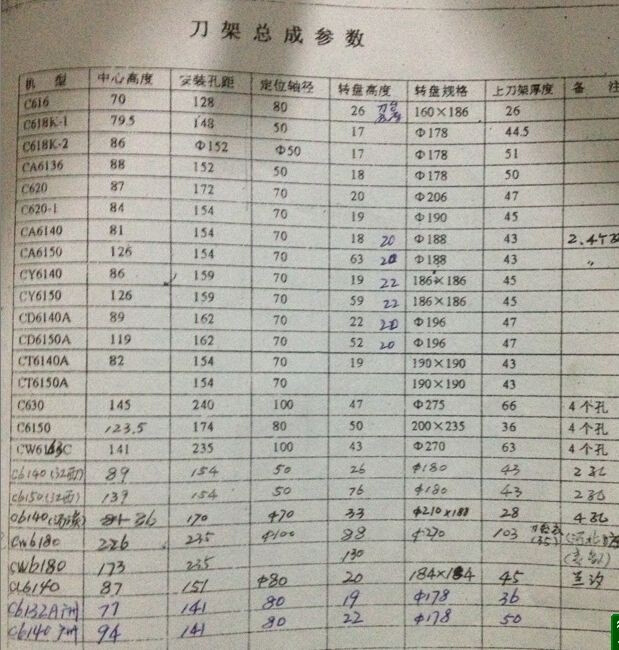 刀架总成参数
机 型 中心高度 安装孔距 定位轴径 转盘高度 转盘规格 上刀架厚度 备 注
C616 70 128 80 26 160×186 26
C618K-1 79.5 148 50 17 Φ178 44.5
C618K-2 86 Φ152 Φ50 17 Φ178 51
CA6136 88 152 50 18 Φ178 50
C620 87 172 70 20 Φ206 47
C620-1 84 154 70 19 Φ190 45
CA6140 81 154 70 18 20 Φ188 43 2.4个
CA6150 126 154 70 63 20 Φ188 43 〃
CY6140 86 159 70 19 22 186×186 45
CY6150 126 159 70 59 22 186×186 45
CD6140A 89 162 70 22 20 Φ196 47
CD6150A 119 162 70 52 20 Φ196 47
CT6140A 82 154 70 19 190×190 43
CT6150A 154 70 190×190 43
C630 145 240 100 47 Φ275 66 4个孔
C6150 123.5 174 80 50 200×235 36 4个孔
CW6163C 141 235 100 43 Φ270 63 4个孔
C6140(江西) 89 154 50 26 Φ180 43 2孔
C6150(江西) 139 154 50 76 Φ180 43 2孔
C6140 86 170 Φ70 33 Φ210×188 28 4孔
CW6180 226 235 Φ100 88 Φ270 103 (35)
CW6180 173 235 130
CA6140 87 151 Φ80 20 184×184 45
C6132A 77 141 80 19 Φ178 36
C6140 94 141 80 22 Φ178 50